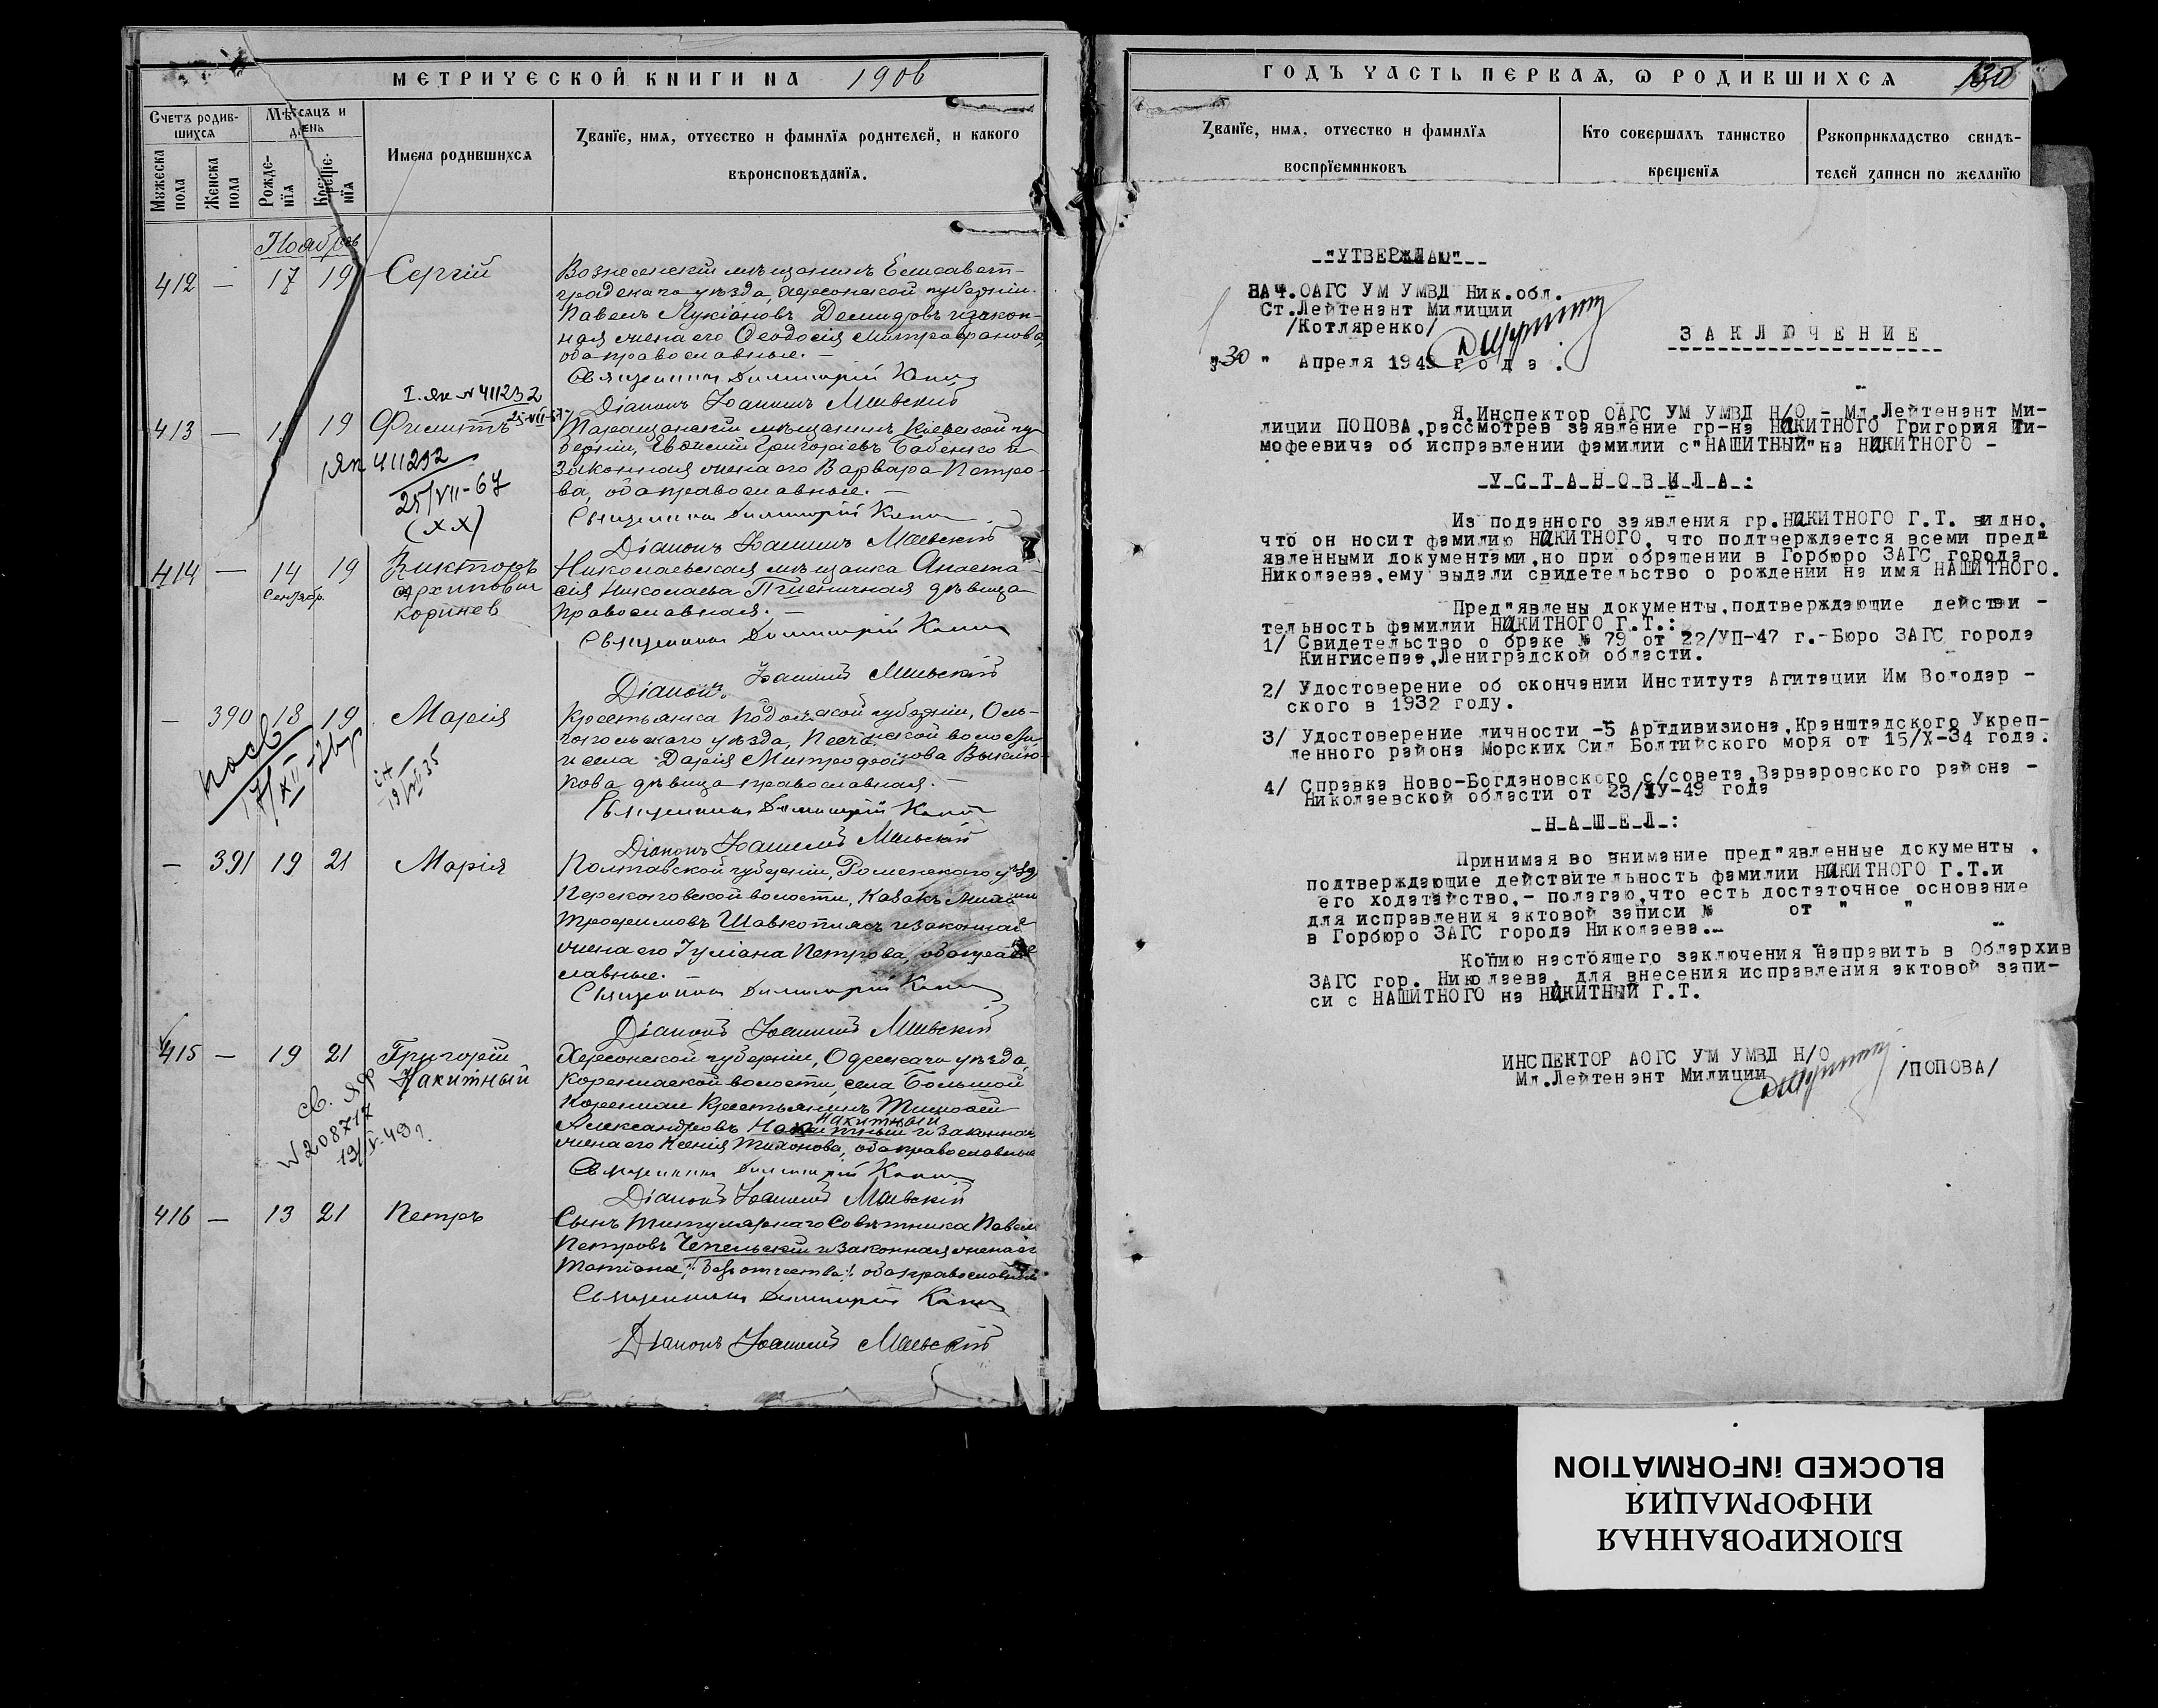 МЕТРИЧЕСКОЙ КНИГИ НА 1906
Счетъ родив-
шихся
Мѣсяцъ и
день
Мꙋжеска
пола
Женска
пола
Рожде-
нїя
Креще-
нїя
Имена родившихся
Званїе, имя, отчество и фамилїя родителей, и какого
вѣроисповѣданїя.
Ноябрь
412 — 17 19 Сергій
Вознесенскій мѣщанинъ Елисавет-
градскаго уѣзда, Херсонской губерніи
Павелъ Лукіановъ Демидовъ и закон-
ная жена его Ѳеодосія Митрофанова,
оба православные. —
Священникъ Димитрій
Діаконъ Іоаннъ Маевскій
I. Яп № 411232
25-VII-67
413 — 19 Филиппъ
Таращанскій мѣщанинъ Кіевской гу-
берніи, Евѳимій Григорьевъ Бабенко и
законная жена его Варвара Петро-
ва, оба православные. —
Яп 411232
25/VII-67
(XX)
Священникъ Димитрій
Діаконъ Іоаннъ Маевскій
414 — 14 19 Викторъ
Сентябр.
Архипович
Коринев
Николаевская мѣщанка Анаста-
сія Николаева Пшеничная дѣвица
православная. —
Священникъ Димитрій
Діаконъ Іоаннъ Маевскій
— 390 18 19 Марія
Крестьянка Подольской губерніи, Оль-
гопольскаго уѣзда, Песчанской волости
и села Дарія Митрофанова
дѣвица православная. —
17/XII
19/VII 35
Священникъ Димитрій
Діаконъ Іоаннъ Маевскій
— 391 19 21 Марія
Полтавской губерніи, Роменскаго уѣзд
Перекоповской волости, Казакъ
Трофимовъ Шавкоплясъ и законная
жена его Іуліана Петрова, оба право
славные. —
Священникъ Димитрій
Діаконъ Іоаннъ Маевскій
415 — 19 21 Григорій
Накитный
Херсонской губерніи, Одесскаго уѣзда,
Корениской волости, села Большой
Коренихи Крестьянинъ Тимоѳей
Накитный
Александровъ и законная
жена его Ксенія Тихонова, оба православные
св. ЯР
№ 208717
19/V-49 г.
Священникъ Димитрій
Діаконъ Іоаннъ Маевскій
416 — 13 21 Петръ
Сынъ Титулярнаго Совѣтника Павелъ
Петровъ Чепельскій и законная жена его
Татіана, безъ отчества, оба православные
Священникъ Димитрій
Діаконъ Іоаннъ Маевскій
ГОДЪ ЧАСТЬ ПЕРВАЯ, Ѡ РОДИВШИХСЯ 130
Званїе, имя, отчество и фамилїя
воспрїемниковъ
Кто совершалъ таинство
крещенїя
Рꙋкоприкладство свидѣ-
телей записи по желанїю
"УТВЕРЖДАЮ"
НАЧ.ОАГС УМ УМВД Ник.обл.
Ст.Лейтенант Милиции
/Котляренко/
"30" Апреля 1949 года.
ЗАКЛЮЧЕНИЕ
Я,Инспектор ОАГС УМ УМВД Н/О - Мл.Лейтенант Ми-
лиции ПОПОВА,рассмотрев заявление гр-на НАКИТНОГО Григория Ти-
мофеевича об исправлении фамилии с"НАШИТНЫЙ"на НАКИТНОГО -
У_С_Т_А_Н_О_В_И_Л_А_:
Из поданного заявления гр.НАКИТНОГО Г.Т. видно,
что он носит фамилию НАКИТНОГО, что подтверждается всеми пред"
явленными документами,но при обращении в Горбюро ЗАГС города
Николаева,ему выдали свидетельство о рождении на имя НАШИТНОГО.
Пред"явлены документы,подтверждающие действи -
тельность фамилии НАКИТНОГО Г.Т.:
1/ Свидетельство о браке № 79 от 22/УП-47 г.-Бюро ЗАГС города
Кингисепаэ,Ленинградской области.
2/ Удостоверение об окончании Института Агитации Им Володар -
ского в 1932 году.
3/ Удостоверение личности -5 Артдивизиона,Кранштадского Укреп-
ленного района Морских Сил Болтийского моря от 15/X-34 года.
4/ Справка Ново-Богдановского с/совета,Варваровского района -
Николаевской области от 23/IУ-49 года
_Н_А_Ш_Е_Л_:
Принимая во внимание пред"явленные документы ,
подтверждающие действительность фамилии НАКИТНОГО Г.Т.и
его ходатайство,- полагаю,что есть достаточное основание
для исправления актовой записи № от " "
в Горбюро ЗАГС города Николаева.-
Копию настоящего заключения направить в Облархив
ЗАГС гор. Николаева, для внесения исправления актовой запи-
си с НАШИТНОГО на НАКИТНЫЙ Г.Т.
ИНСПЕКТОР АОГС УМ УМВД Н/О
Мл.Лейтенант Милиции /ПОПОВА/
БЛОКИРОВАННАЯ
ИНФОРМАЦИЯ
BLOCKED INFORMATION